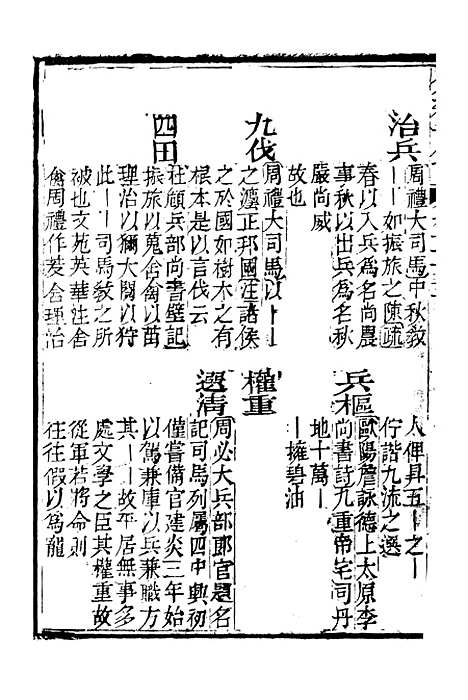 治兵
周禮大司馬中秋教
｜｜如振旅之陳疏
春以入兵爲名尚農
事秋以出兵爲名秋
嚴尚威
故也
九伐
周禮大司馬以｜｜
之灋正邦國注諸侯
之於國如樹木之有
根本是以言伐云
四田
杜顧兵部尚書壁記
振旅以蒐舍禽以苗
理治以獮大閱以狩
此｜｜司馬敎之所
被也文苑英華注舍
禽周禮作茇舍理治
人俾昇五｜之｜
佇諧九流之選
兵樞
歐陽詹詠德上太原李
尚書詩九重帝宅司丹
地十萬｜
｜擁碧油
權重
選清
周必大兵部郎官題名
記司馬列屬四中興初
僅嘗備官建炎三年始
以駕兼庫以兵兼職方
其｜｜故平居無事多
處文學之臣其權重故
從軍若將命則
往往假以爲寵